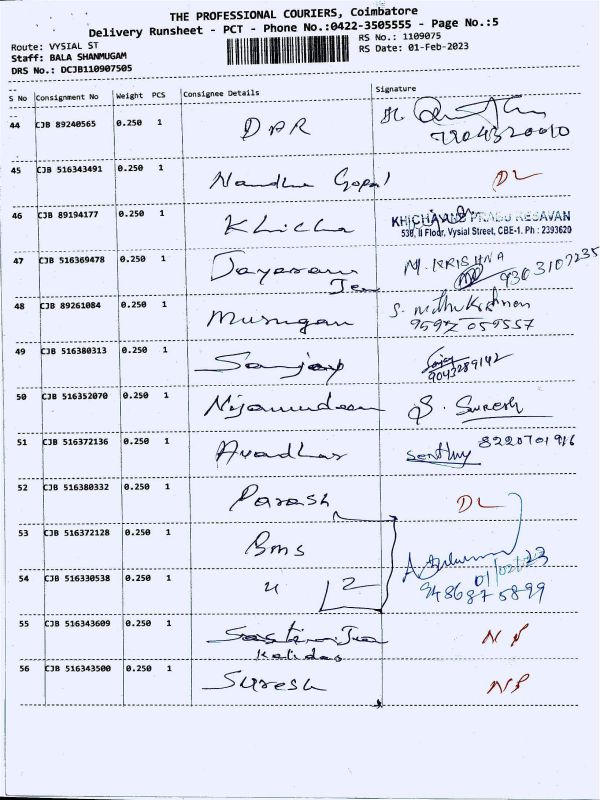 THE PROFESSIONAL COURIERS, Coimbatore
Delivery Runsheet - PCT - Phone No.:0422-3505555 - Page No.:5
Route: VYSIAL ST
RS No.: 1109075
Staff: BALA SHANMUGAM
RS Date: 01-Feb-2023
DRS No.: DCJB110907505
S No Consignment No Weight PCS Consignee Details Signature
44 CJB 89240565 0.250 1 DPR
45 CJB 516343491 0.250 1 Nandha Gopal DL
46 CJB 89194177 0.250 1 Khicha KHICHA AND PRABU KESAVAN
538, II Floor, Vysial Street, CBE-1. Ph : 2393620
47 CJB 516369478 0.250 1 Jayaram M. KRISHNA 9363107235
48 CJB 89261084 0.250 1 Murugan S. muthukrishnan
059557
49 CJB 516380313 0.250 1 Sanjay
9043289142
50 CJB 516352070 0.250 1 Nijamudeen S. Suresh
51 CJB 516372136 0.250 1 8220701916
52 CJB 516380332 0.250 1 Parash DL
53 CJB 516372128 0.250 1 Bms 01/02/23
54 CJB 516330538 0.250 1 u 2 9486875899
55 CJB 516343609 0.250 1 NP
Kalidas
56 CJB 516343500 0.250 1 Suresh NP